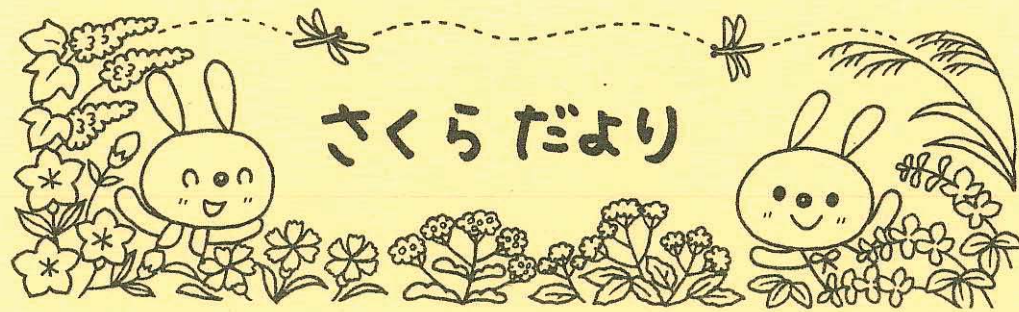 さくらだより